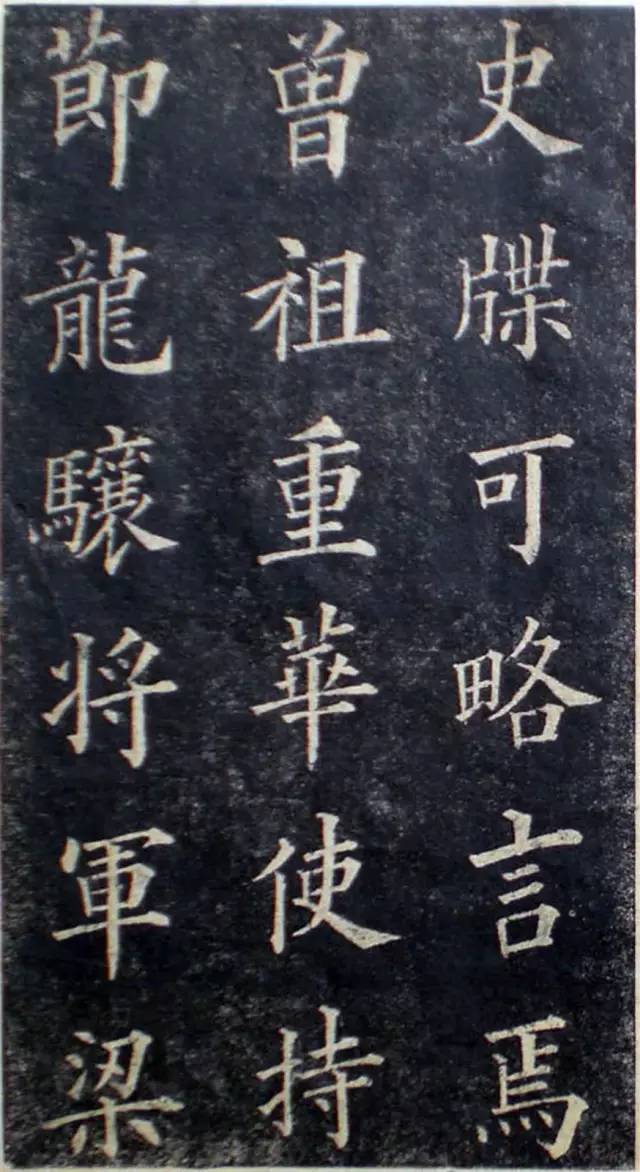 史牒可略言焉
曾祖重華使持
節龍驤將軍梁